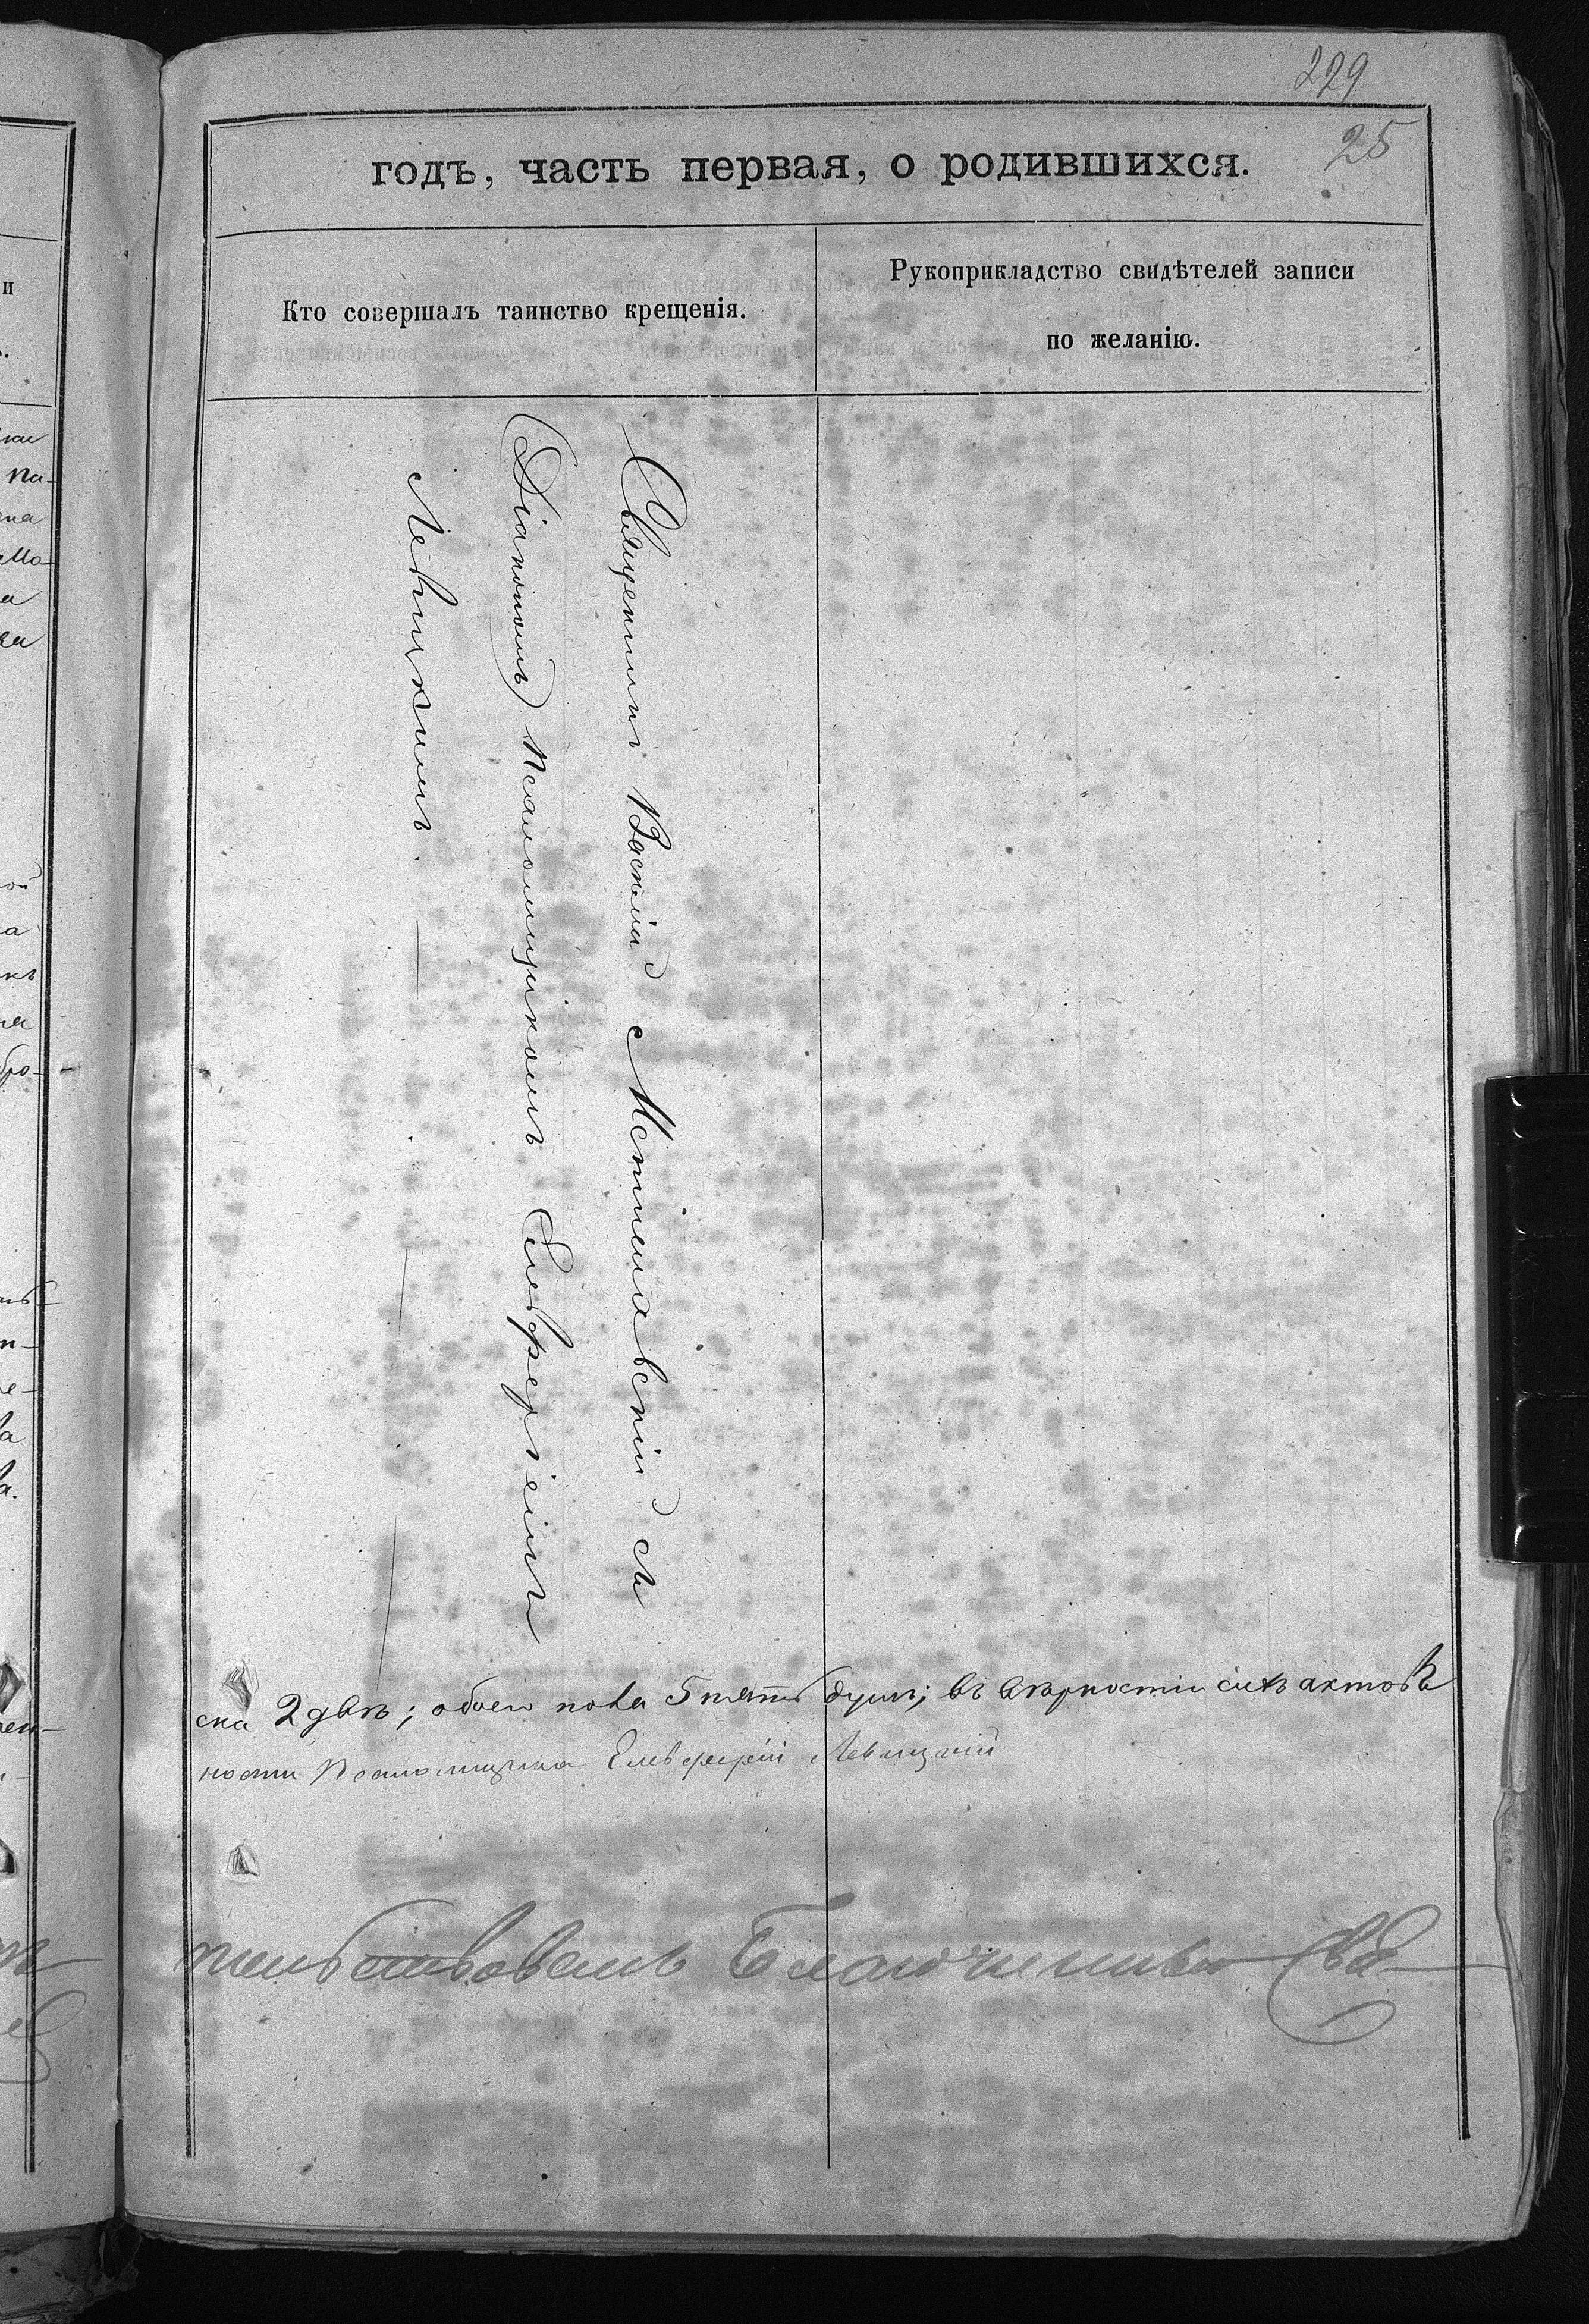 229
25
годъ, часть первая, о родившихся.
Кто совершалъ таинство крещенія.
Рукоприкладство свидѣтелей записи
по желанію.
Священникъ Василій Мстиславскій съ
(Діакономъ) Псаломщикомъ Елевферіемъ
Левицкимъ.
ска 2 двѣ; обоего пола 5 пять душъ; въ вѣрности сихъ актовъ
ности Псаломщика Елевферій Левицкій
тельствовалъ Благочинный Свя